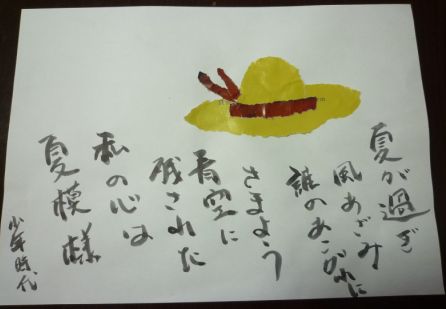 夏が過ぎ
風あざみ
誰のあこがれに
さまよう
青空に
残された
私の心は
夏模様
少年時代